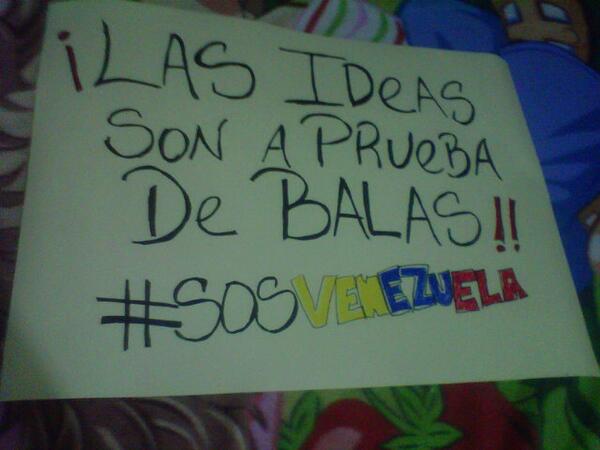 ¡LAS IDeAS
SON A PRUeBA
De BALAS!!
#SOSVENEZUELA